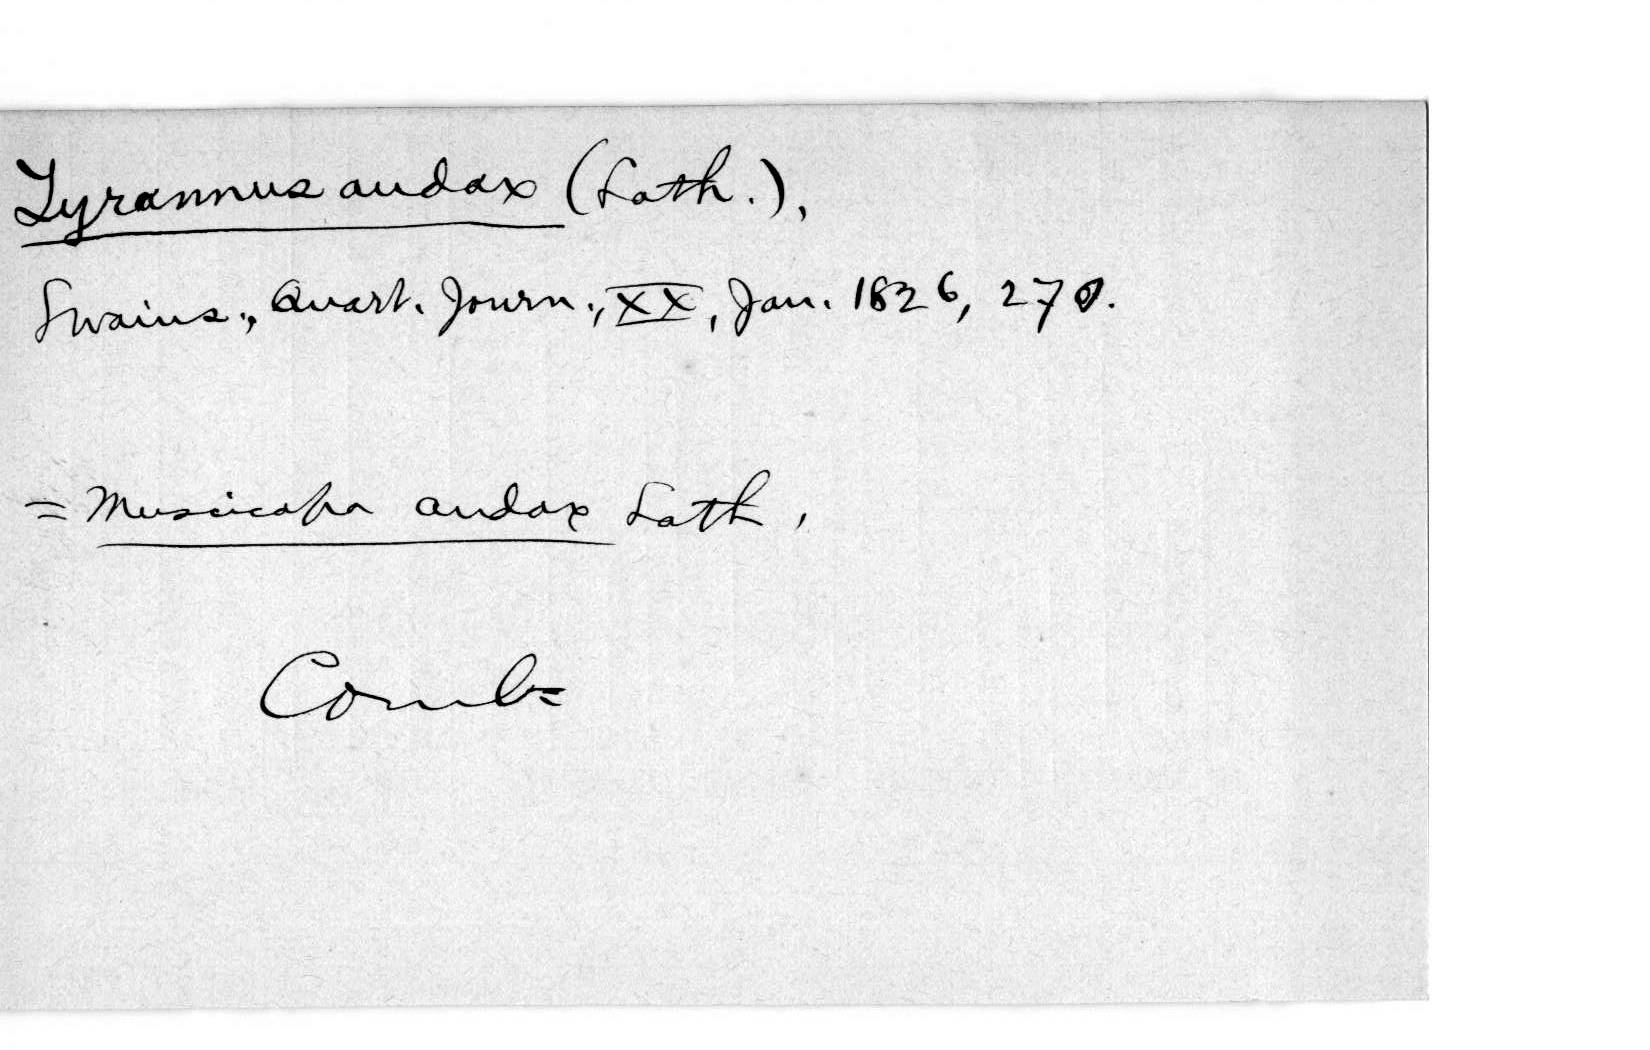 Tyrannus audax (Lath.),
Swains., Quart. Journ., XX, Jan. 1826, 270.
= Muscicapa audax Lath.
Comb=